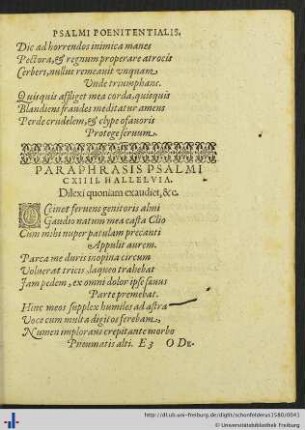 PSALMI POENITENTIALIS.
Dic ad horrendos inimica manes
Pectora, & regnum properare atrocis
Cerberi, nullus remeauit vnquam
Vnde triumphans.
Quisquis affliget mea corda, quisquis
Blandiens fraudes meditatur amens
Perde crudelem, & clypeo fauoris
Protege seruum.
PARAPHRASIS PSALMI
CXIIII. HALLELVIA.
Dilexi quoniam exaudiet, &c.
COncinet feruens genitoris almi
Gaudio natum mea casta Clio
Cum mihi nuper patulam precanti
Appulit aurem.
Parca me duris inopina circum
Voluerat tricis, laqueo trahebat
Jam pedem, ex omni dolor ipse sanus
Parte premebat.
Hinc meos supplex humiles ad astra
Voce cum multa digitos ferebam,
Numen implorans crepitante morbo
Pneumatis alti. E3 O De-
http://dl.ub.uni-freiburg.de/diglit/schonfelderus1580/0041
© Universitätsbibliothek Freiburg